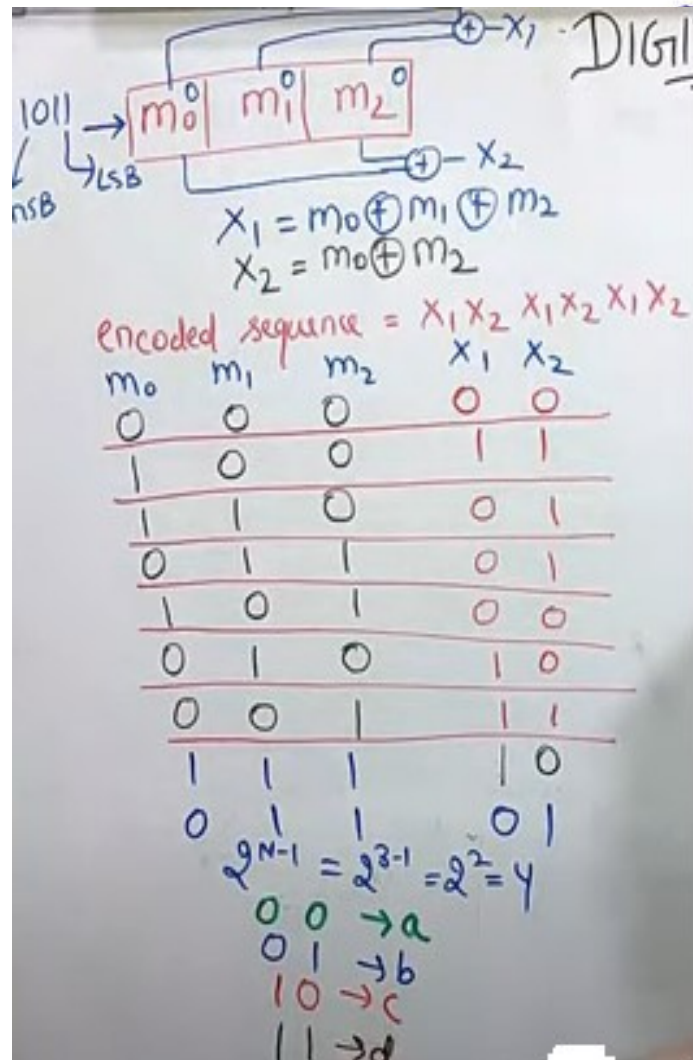 ⊕-X₁ · DIGI
1011 → m₀⁰ m₁⁰ m₂⁰
MSB LSB ⊕-X₂
X₁ = m₀⊕m₁⊕m₂
X₂ = m₀⊕m₂
encoded sequence = X₁X₂ X₁X₂X₁X₂
m₀ m₁ m₂ X₁ X₂
0 0 0 0 0
1 0 0 1 1
1 1 0 0 1
0 1 1 0 1
1 0 1 0 0
0 1 0 1 0
0 0 1 1 1
1 1 1 1 0
0 1 1 0 1
2ᴺ⁻¹ = 2³⁻¹ = 2² = 4
0 0 → a
0 1 → b
1 0 → c
1 1 → d